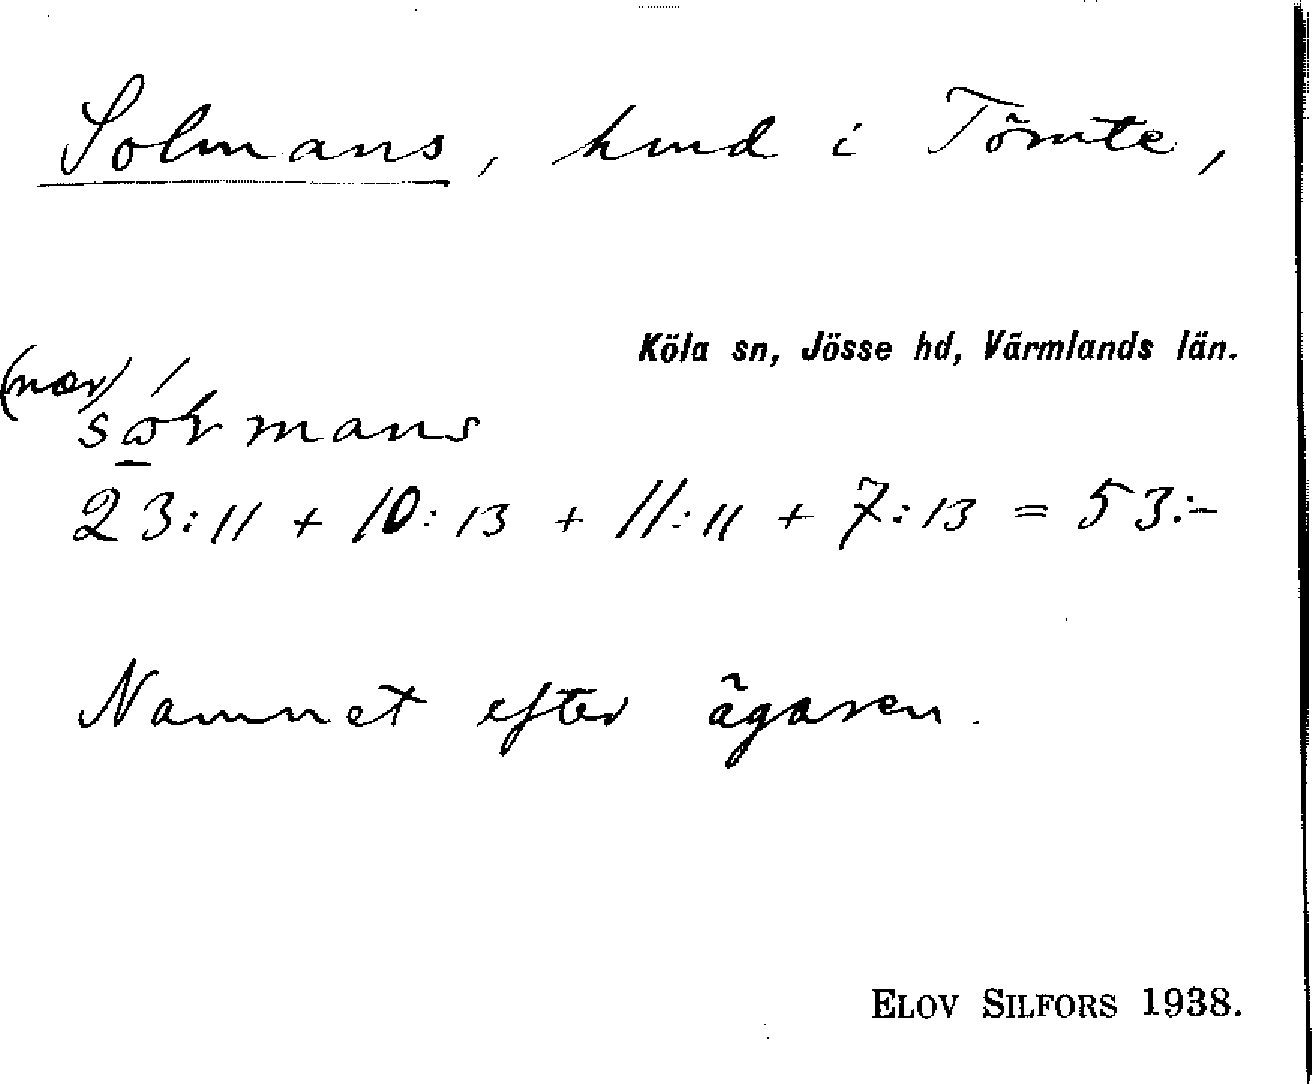 Solmans, hmd i Tömte,
Köla sn, Jösse hd, Värmlands län.
(nær)
23:11 + 10:13 + 11:11 + 7:13 = 53:-
Namnet efter ägaren.
ELOV SILFORS 1938.